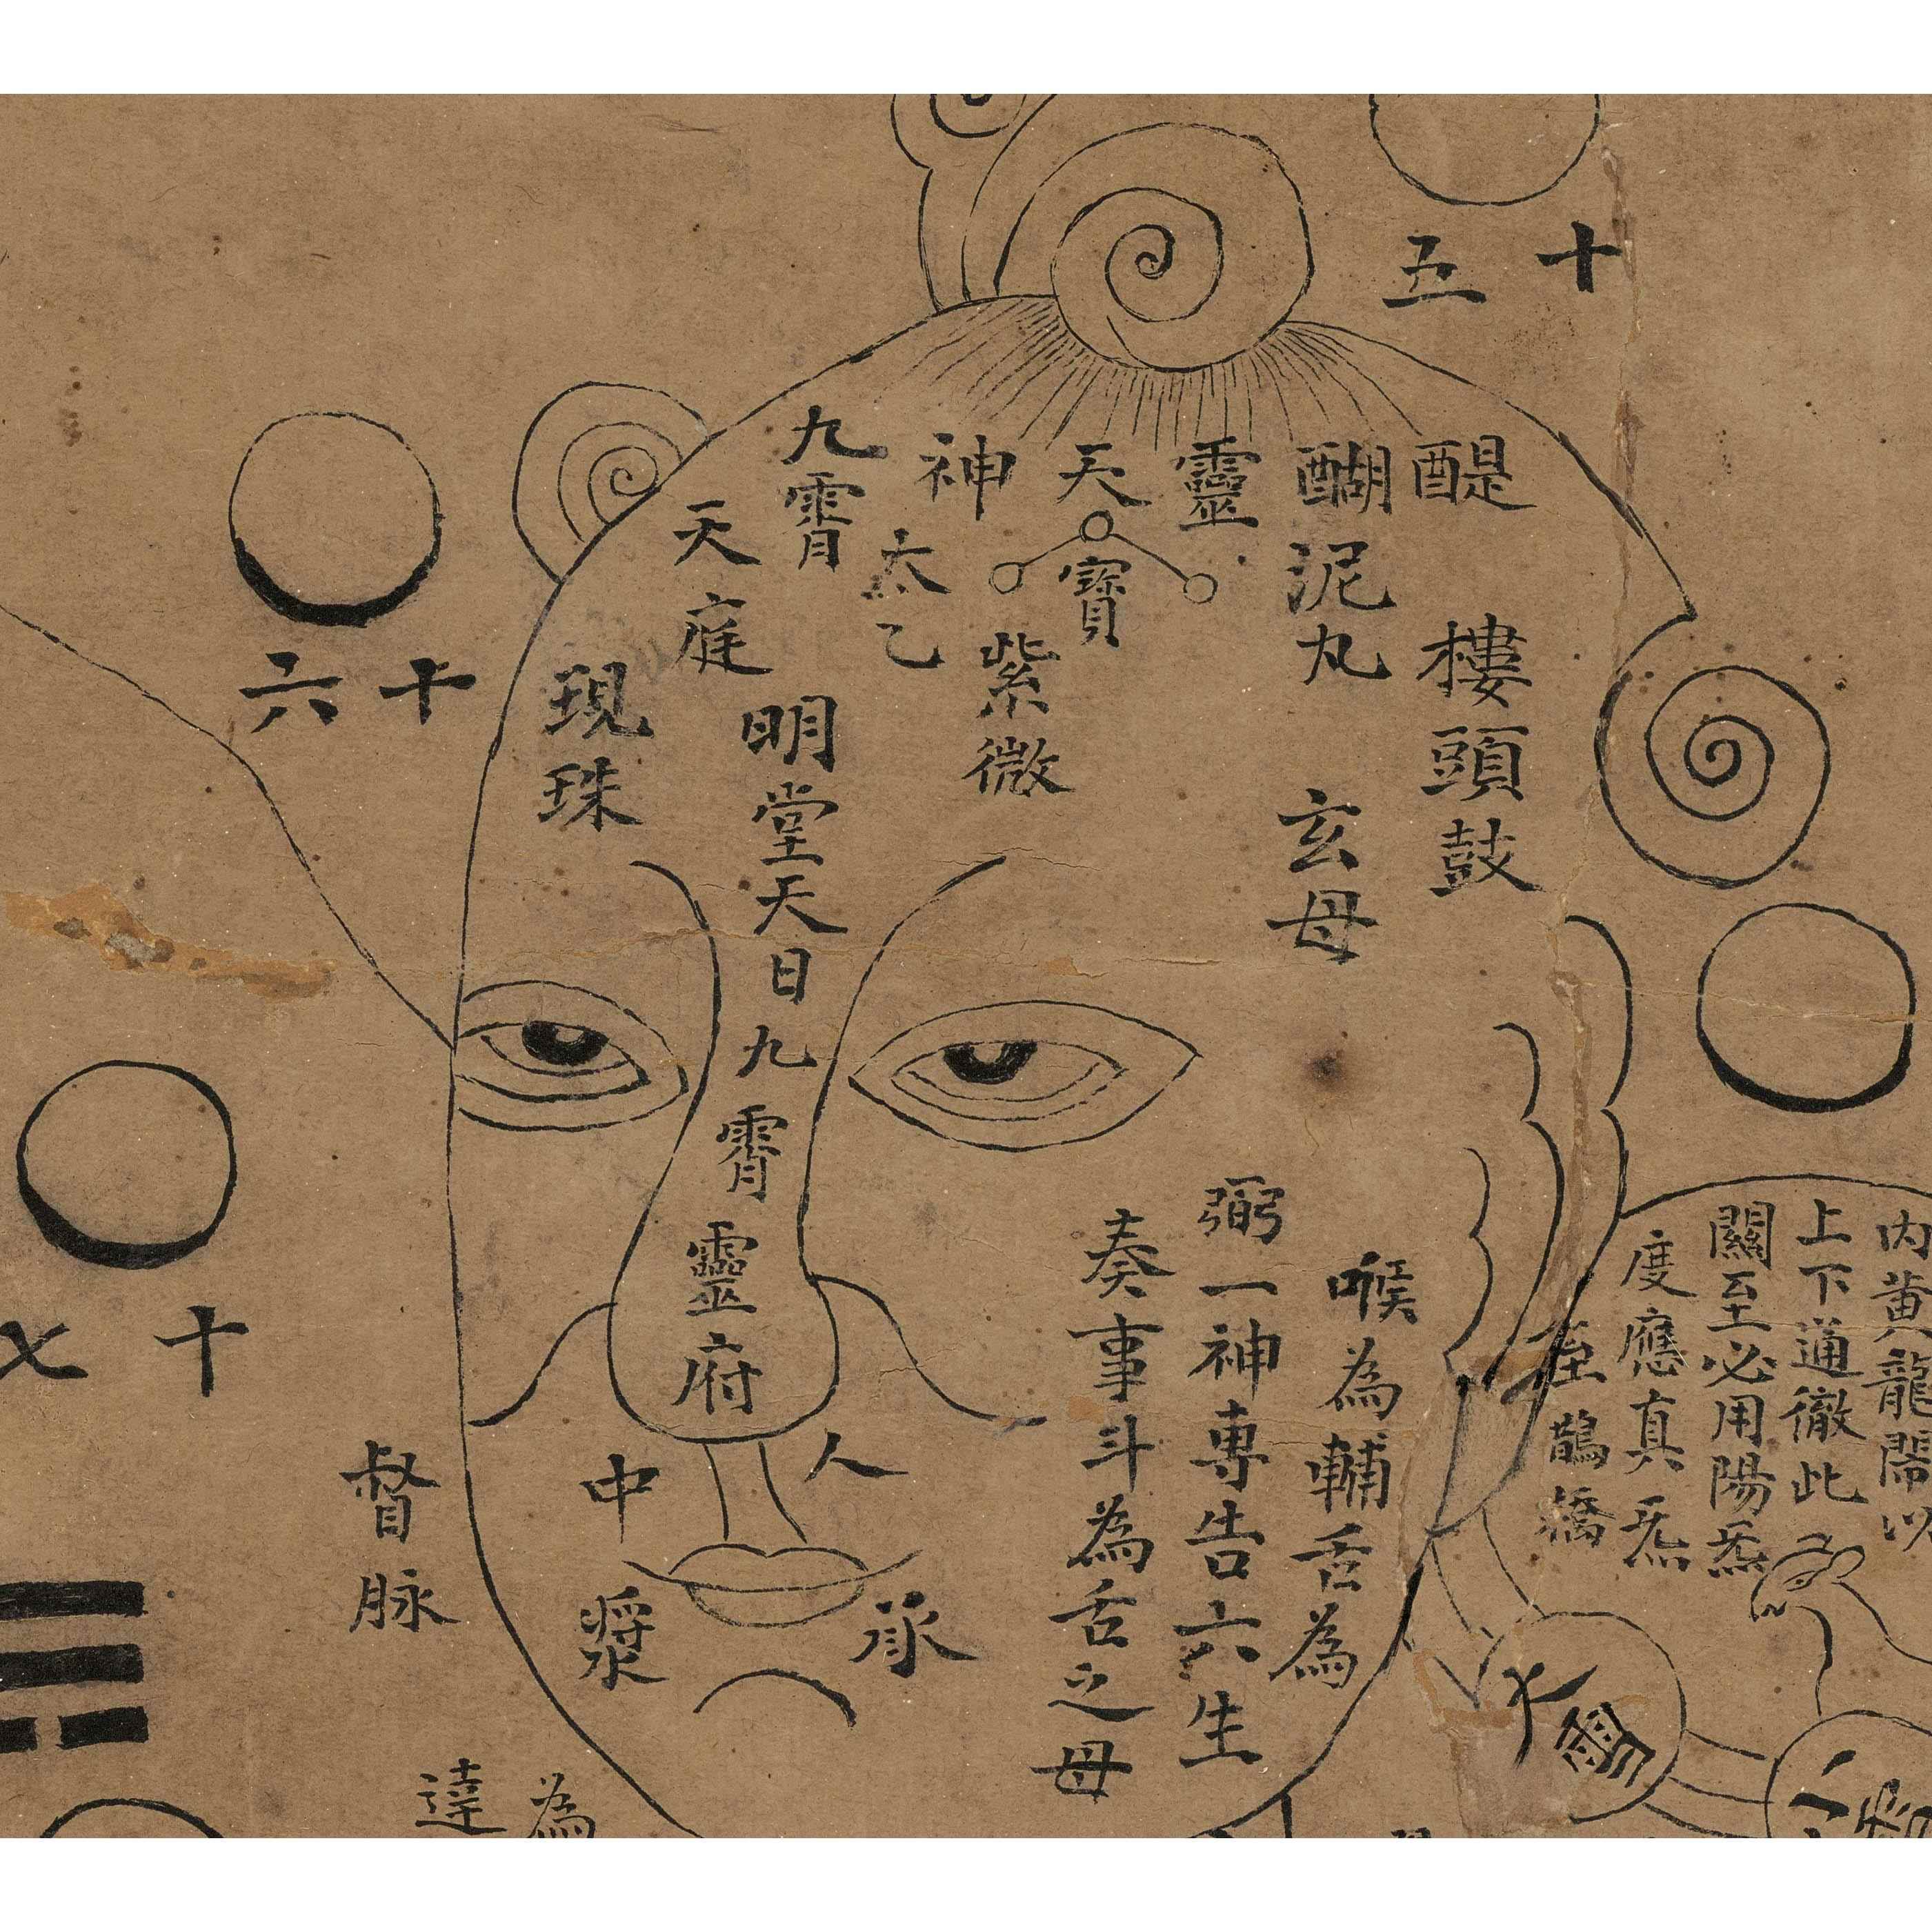 十五
醍醐
靈
天
神
九霄
泥丸
寶
太乙
天庭
樓頭鼓
紫微
現珠
十六
明堂天日九霄靈府
玄母
喉為輔舌為
弼一神專告六生
奏事斗為舌之母
內黄龍閙以
上下通徹此
關至必用陽炁
度應真炁
至鵲橋
十七
人中
承漿
督脉
為
達